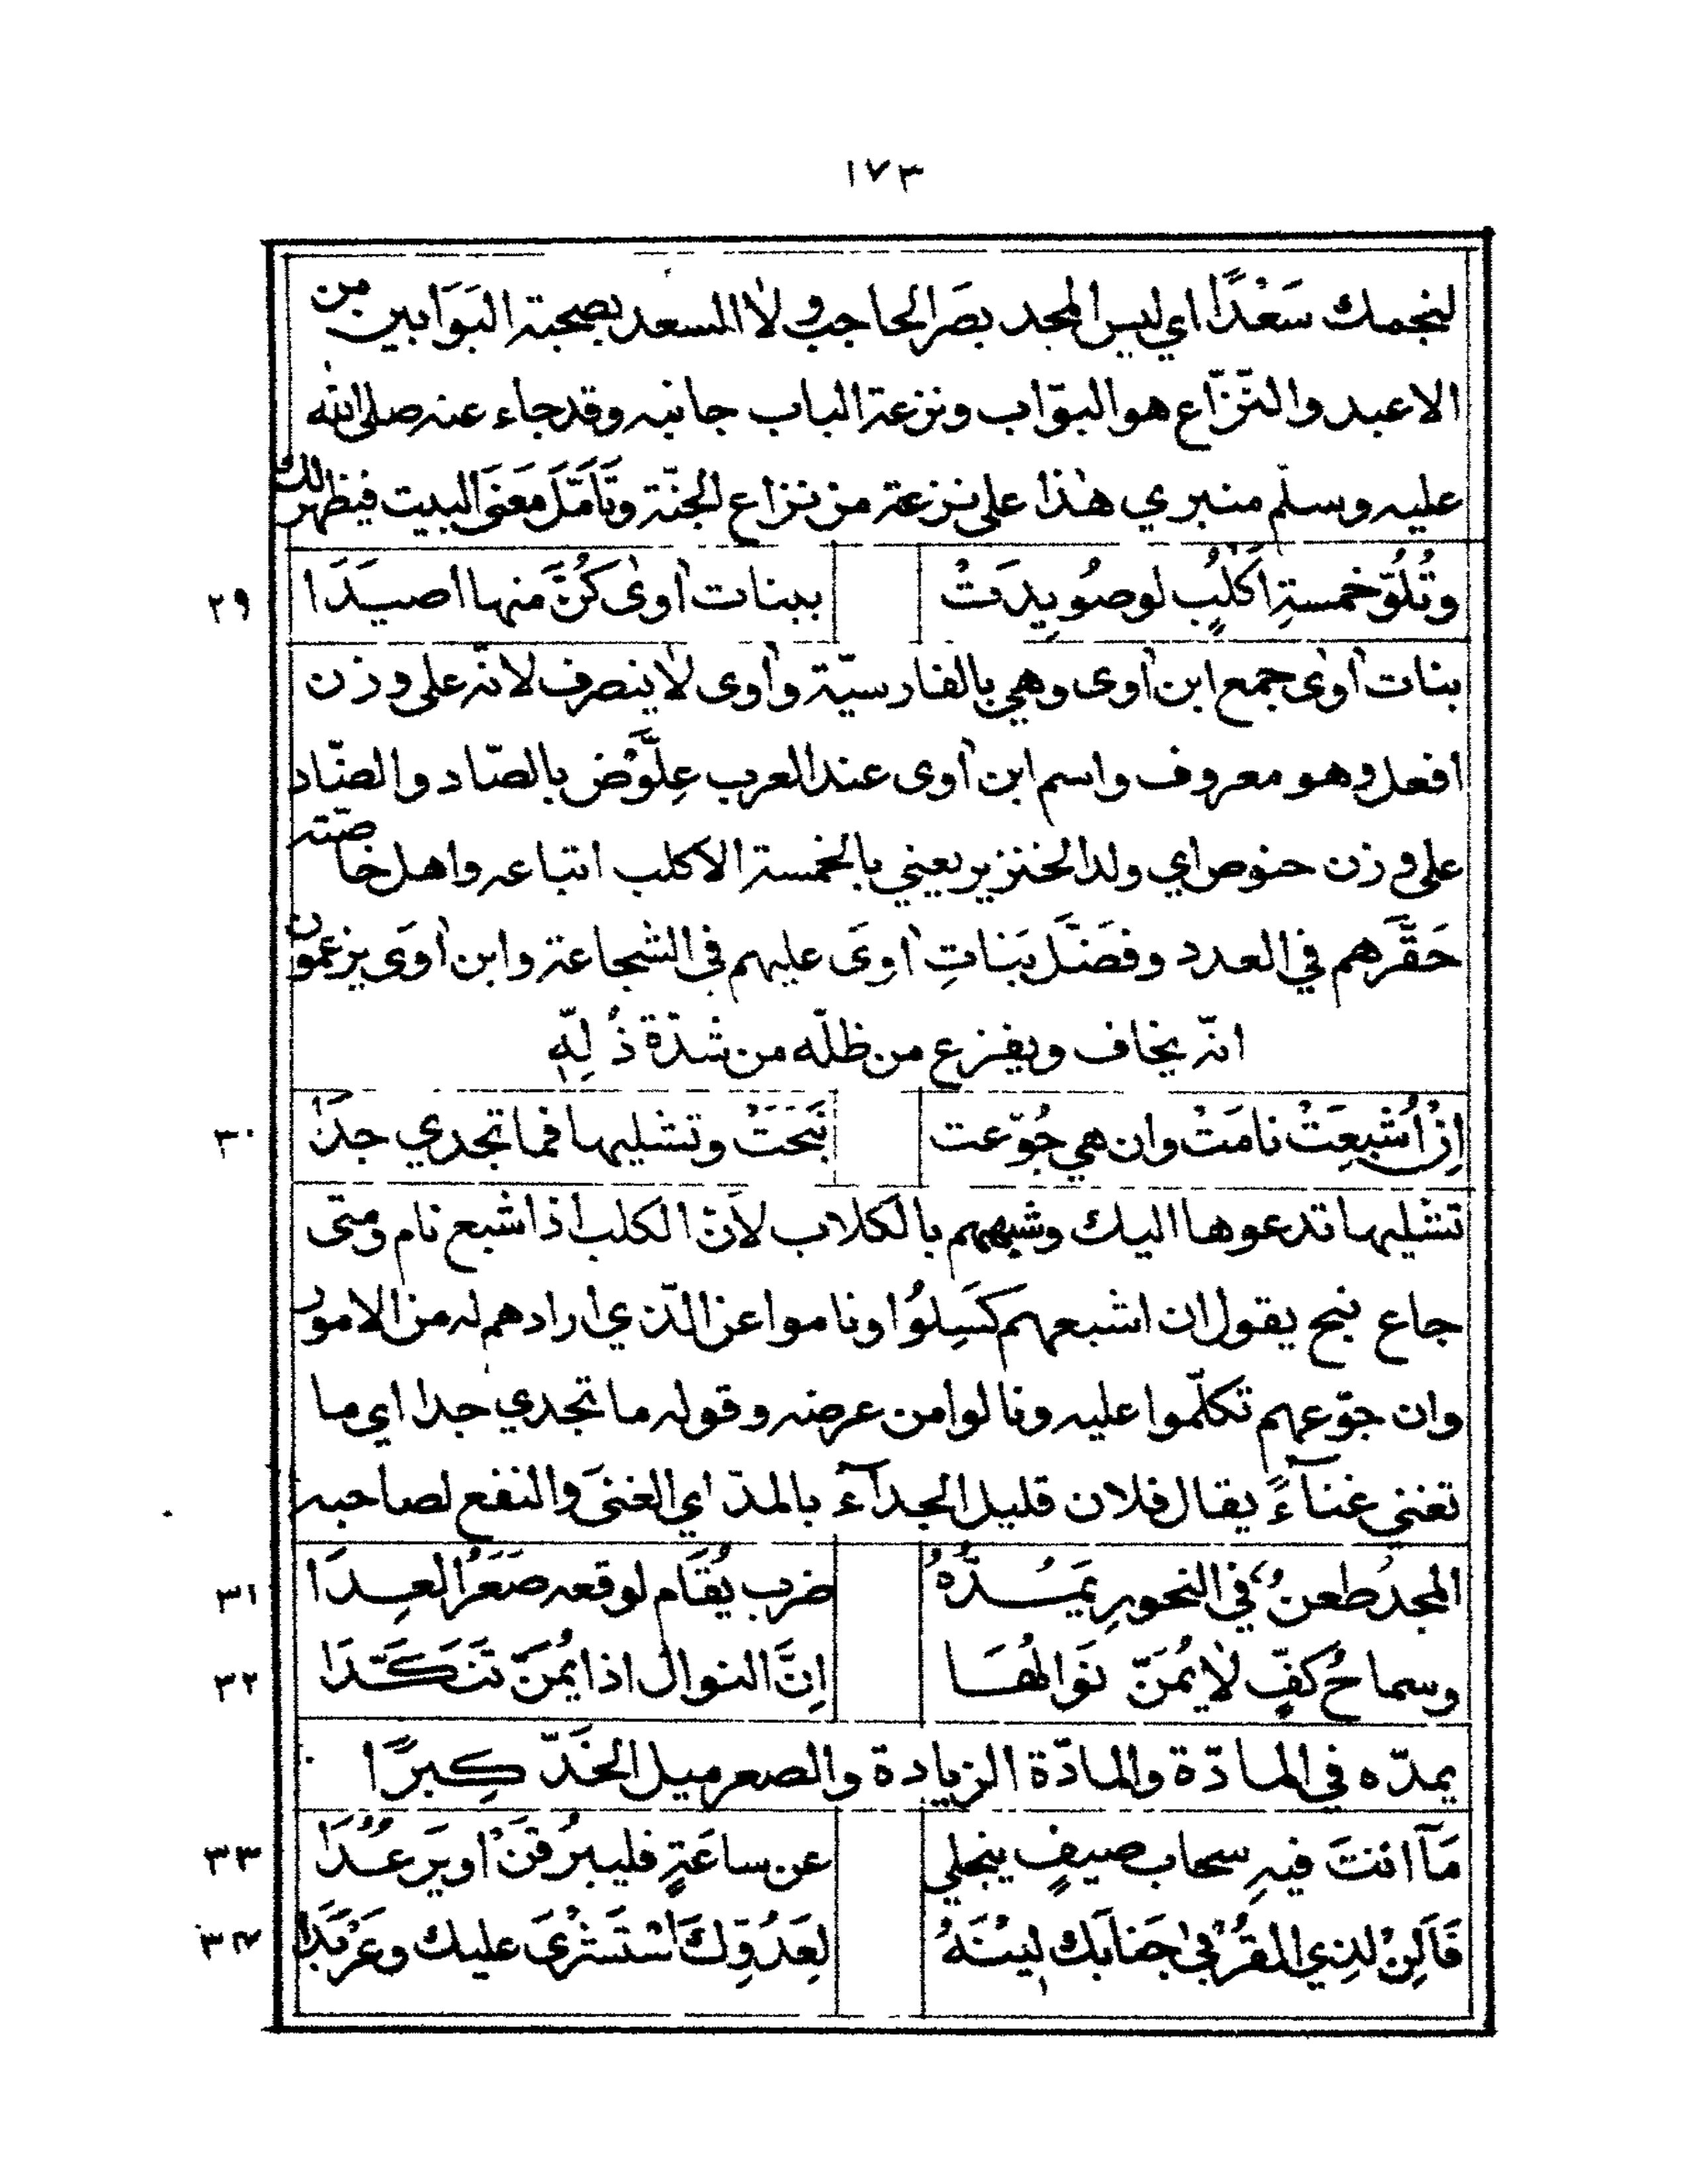 ١٧٣
لنجمك سَعْدًا اي ليس المجد بصَر الحاجب ولا المسعد بصحبة البَوّابين من
الاعبد والتّرّاع هو البوّاب وتزعة الباب جانبه وقد جاء عنه صلى الله
عليه وسلّم منبري هٰذا على تزعة من تزاع الجنّة وتَأمّل مَعنَى البيت فيظهر لك
وتُلُوّ خمسةِ اَكلُبٍ لو صُويِدَتْ ببنات آوىٰ كُنَّ منها اصيَدَا ٢٩
بنات آوىٰ جمع ابن آوى وهي بالفارسيّة وآوى لا ينصرف لانّه على وزن
افعل وهو معروف واسم ابن آوى عند العرب عِلَّوْض بالصّاد والضّاد
على وزن حنوص اي ولد الخنزير يعني بالخمسة الاكلب اتباعه واهل خاصّته
حَقَّرهم في العدد وفضَّل بَناتِ آوَى عليهم في الشجاعة وابن آوَى يزعمون
انّه يخاف ويفزع من ظلّه من شدّة ذُلِّهِ
اِنْ اُشْبِعَتْ نامَتْ وان هي جُوّعت نَبَحَتْ وتشليها فما تجدي جدَا ٣٠
تشليها تدعوها اليك وشبههم بالكلاب لاَنّ الكلب اذا شبع نام ومتى
جاع نبح يقول ان اشبعهم كَسِلُوا وناموا عن الّذي ارادهم له من الامور
وان جوّعهم تكلّموا عليه ونالوا من عرضه وقوله ما تجدي جدا اي ما
تغني غَناءً يقال فلان قليل الجدآء بالمدّ اي الغنىَ والنفع لصاحبه
المجدُ طعنٌ في النحورِ يَمُدُّهُ ضرب يُقَام لوقعه صَعَرُ العِدَا ٣١
وسماحُ كفٍّ لا يُمَنّ نَوَالُهَا اِنَّ النوال اذا يُمنّ تَنَكَّدَا ٣٢
يمدّه في المادّة والمادّة الزيادة والصعر ميل الخَدّ كِبرًا
مَآ اَنتَ فيهِ سحاب صيفٍ ينجلي عن ساعَةٍ فليبرُقَنْ اَو يَرعُدَا ٣٣
فَآلِنْ لذِي المقرُبىٰ جَنابَك لِينَهُ لِعَدُوِّكَ اَسْتَشْرَىَ عليك وعَرْبَدَا ٣٤